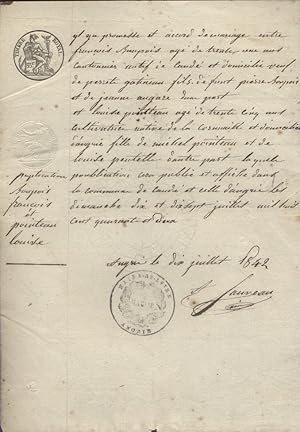 il y a promesse et accord de mariage entre
françois Aupois age de trente une ans
cultivateur natif de Candé et domicilié veuf
de perrete gatineau fils de funt pierre Aupois
et de jeanne dune part
et louise pointeau age de trente cinq ans
cultivatrice native de la Cornuaille et domicilié
dangrie fille de michel pointeau et
de louise dautre part laquele
publication cera publié et afiché dans
la commune de candé et celle dangrie les
dimanche dix et dixsept juillet mil huit
cent quarante et deux
publication
Aupois
françois
et
pointeau
louise
Angrie le dix juillet 1842